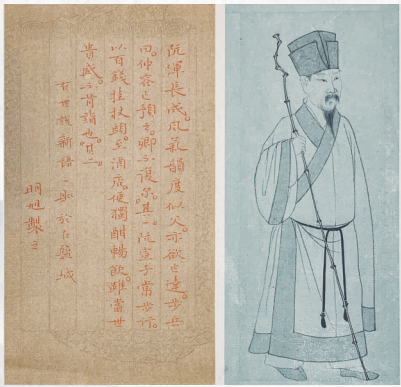 阮渾長成。風氣韻度似父。亦欲作達。步兵
曰。仲容已預之。卿不復尔。其一。阮宣子常步行。
以百錢挂杖頭。至酒店。便獨酣暢。雖當世
貴盛不肯詣也。其二。
右世說新語一則於 城
明旭製